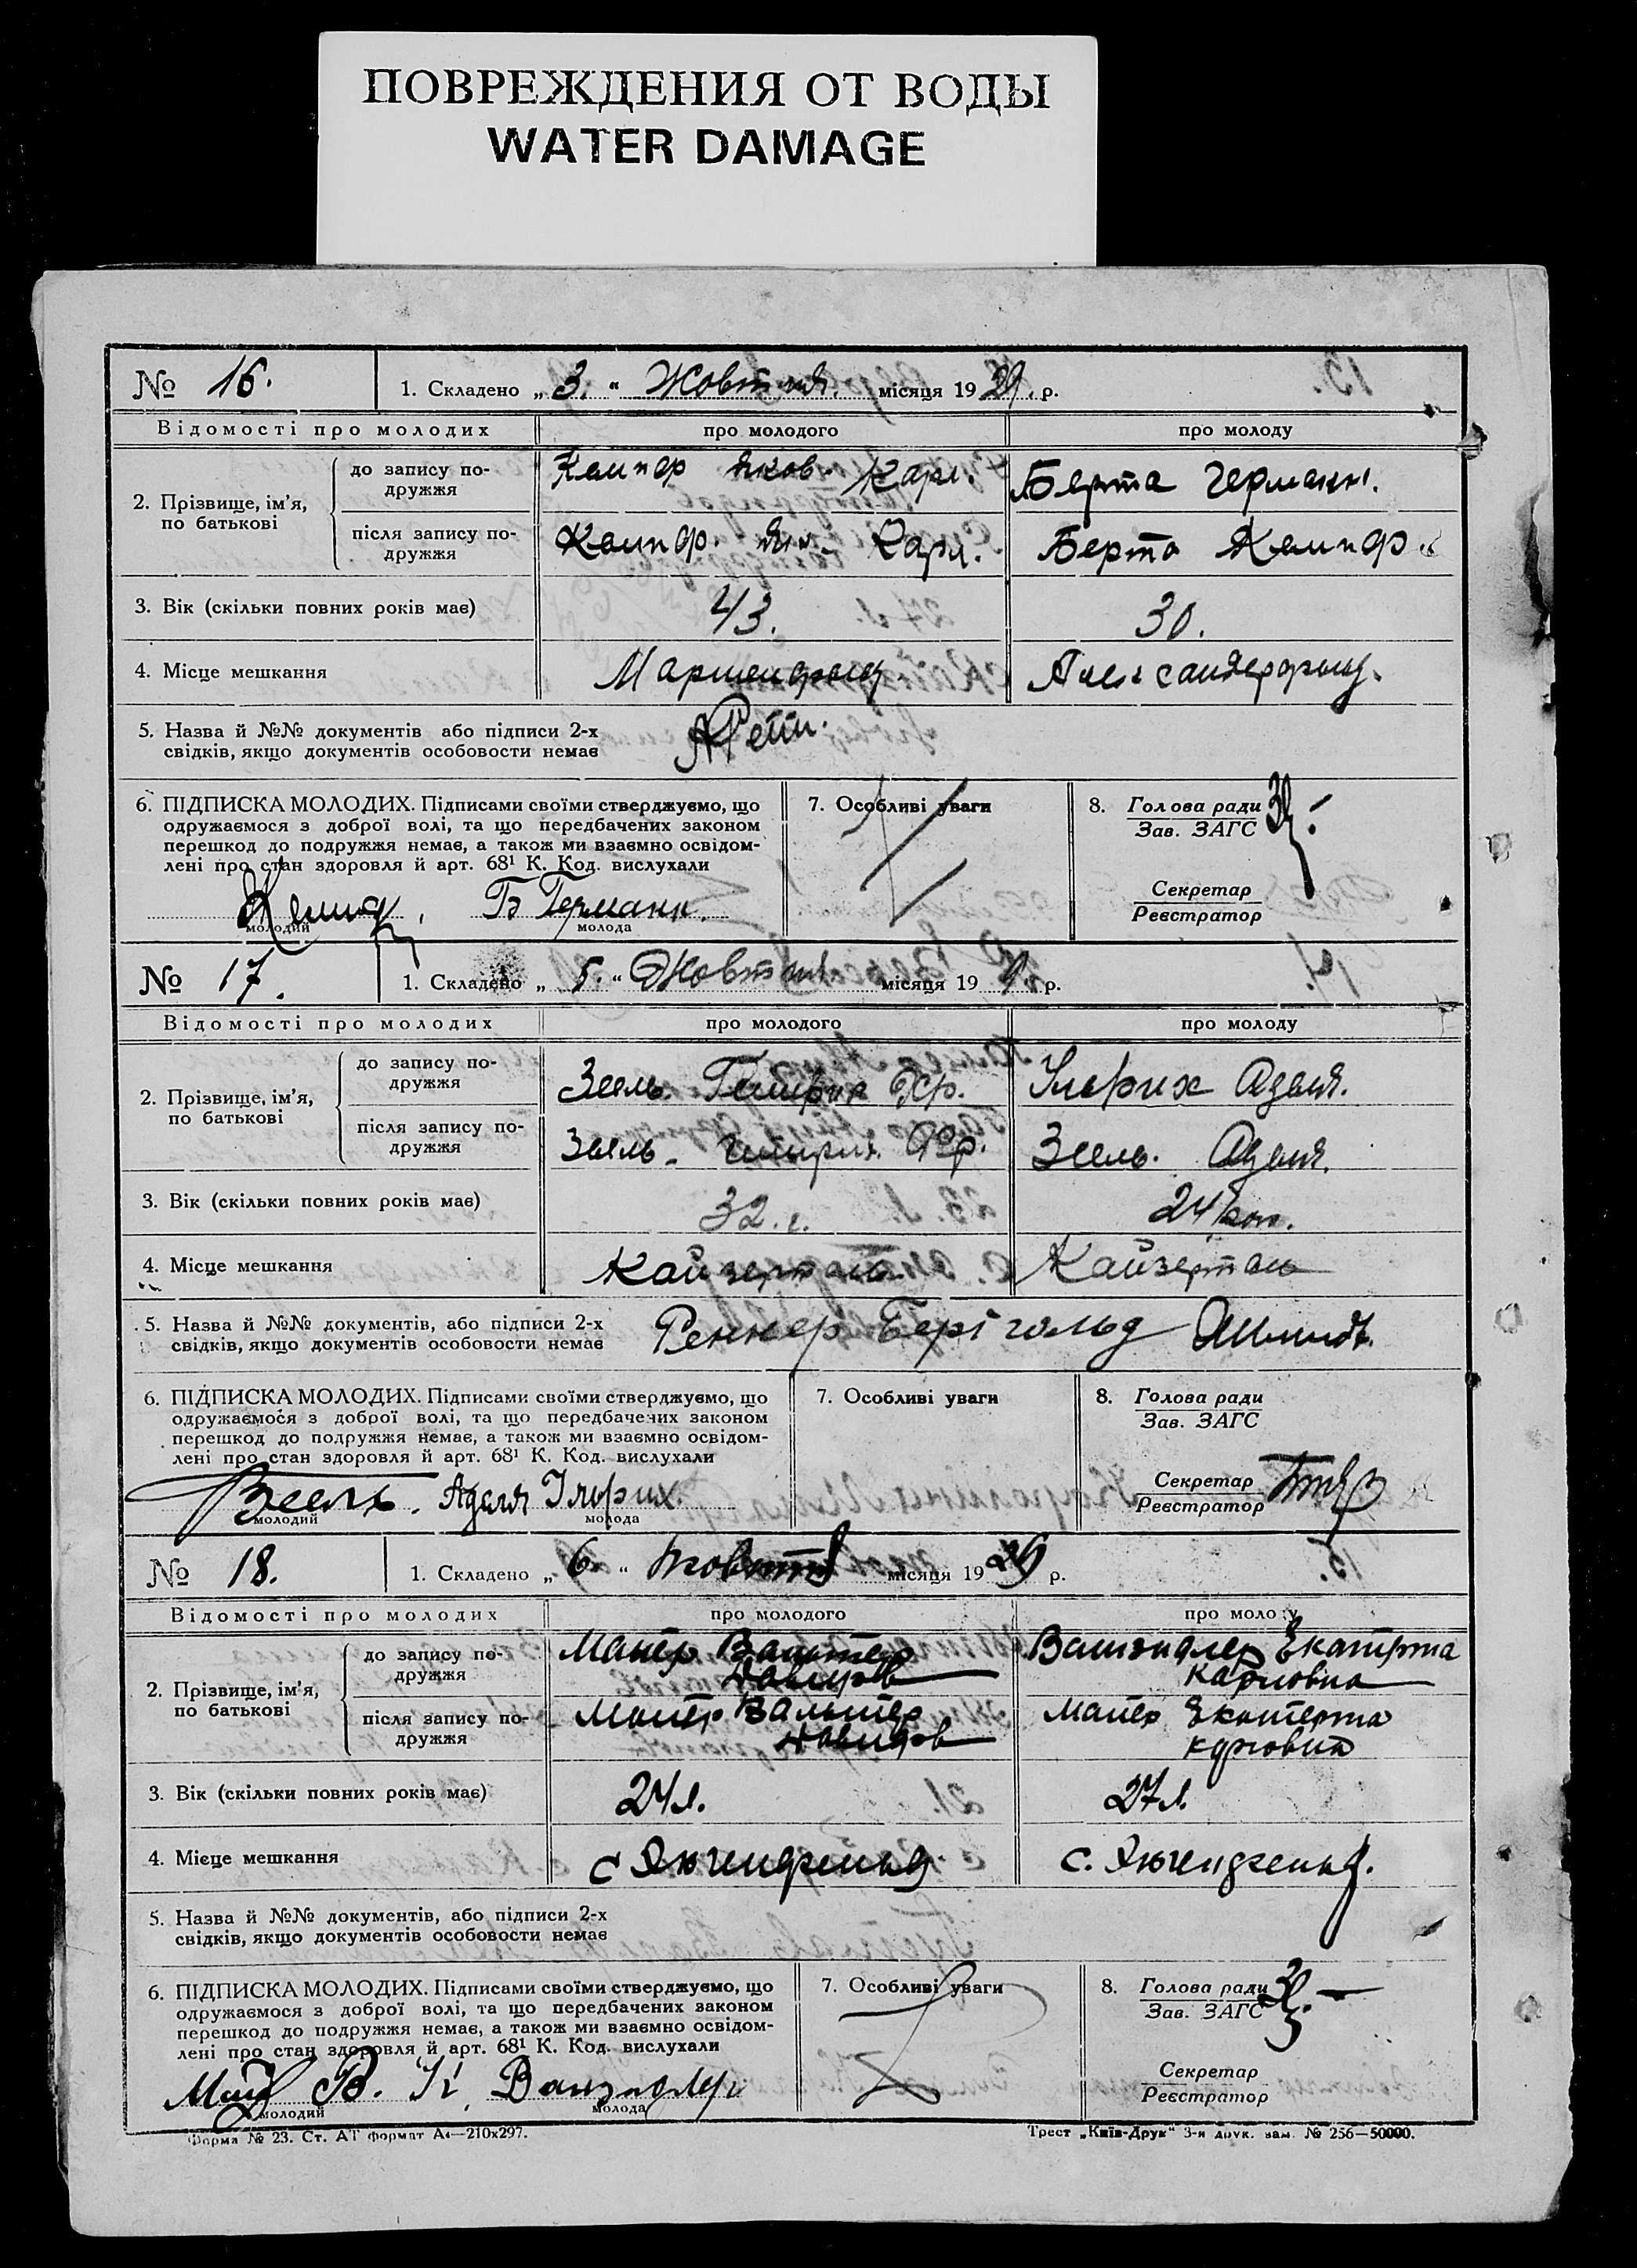 ПОВРЕЖДЕНИЯ ОТ ВОДЫ
WATER DAMAGE
№ 16. 1. Складено „ 3. “ Жовтня. місяця 19 29. р.
Відомості про молодих про молодого про молоду
2. Прізвище, ім’я, по батькові
до запису подружжя Яков. Карл. Берта Германн.
після запису подружжя Карл. Берта Кемпф
3. Вік (скільки повних років має) 43. 30.
4. Місце мешкання
5. Назва й №№ документів або підписи 2-х
свідків, якщо документів особовости немає
6. ПІДПИСКА МОЛОДИХ. Підписами своїми стверджуємо, що
одружаємося з доброї волі, та що передбачених законом
перешкод до подружжя немає, а також ми взаємно освідом-
лені про стан здоровля й арт. 68¹ К. Код. вислухали
Б Германн.
молодий молода
7. Особливі уваги
8. Голова ради
Зав. ЗАГС
Секретар
Реєстратор
№ 17. 1. Складено „ 5. “ Жовтня місяця 19 р.
Відомості про молодих про молодого про молоду
2. Прізвище, ім’я, по батькові
до запису подружжя Зеель. Аделя.
після запису подружжя Зеель. Фр. Зеель. Аделя.
3. Вік (скільки повних років має) 32. 24
4. Місце мешкання Кайзерталь. Кайзерталь
5. Назва й №№ документів, або підписи 2-х
свідків, якщо документів особовости немає
Реннер
6. ПІДПИСКА МОЛОДИХ. Підписами своїми стверджуємо, що
одружаємося з доброї волі, та що передбачених законом
перешкод до подружжя немає, а також ми взаємно освідом-
лені про стан здоровля й арт. 68¹ К. Код. вислухали
Зеель. Аделя
молодий молода
7. Особливі уваги
8. Голова ради
Зав. ЗАГС
Секретар
Реєстратор
№ 18. 1. Складено „ 6 “ Жовтня місяця 19 29 р.
Відомості про молодих про молодого про молоду
2. Прізвище, ім’я, по батькові
до запису подружжя Майер Вальтер Давидов Карловна
після запису подружжя Майер Вальтер Давидов Майер
3. Вік (скільки повних років має) 24 л. 27 л.
4. Місце мешкання
5. Назва й №№ документів, або підписи 2-х
свідків, якщо документів особовости немає
6. ПІДПИСКА МОЛОДИХ. Підписами своїми стверджуємо, що
одружаємося з доброї волі, та що передбачених законом
перешкод до подружжя немає, а також ми взаємно освідом-
лені про стан здоровля й арт. 68¹ К. Код. вислухали
молодий молода
7. Особливі уваги
8. Голова ради
Зав. ЗАГС
Секретар
Реєстратор
Форма № 23. Ст. АТ формат А4—210х297.
Трест „Київ-Друк“ 3-я друк. зам. № 256—50000.